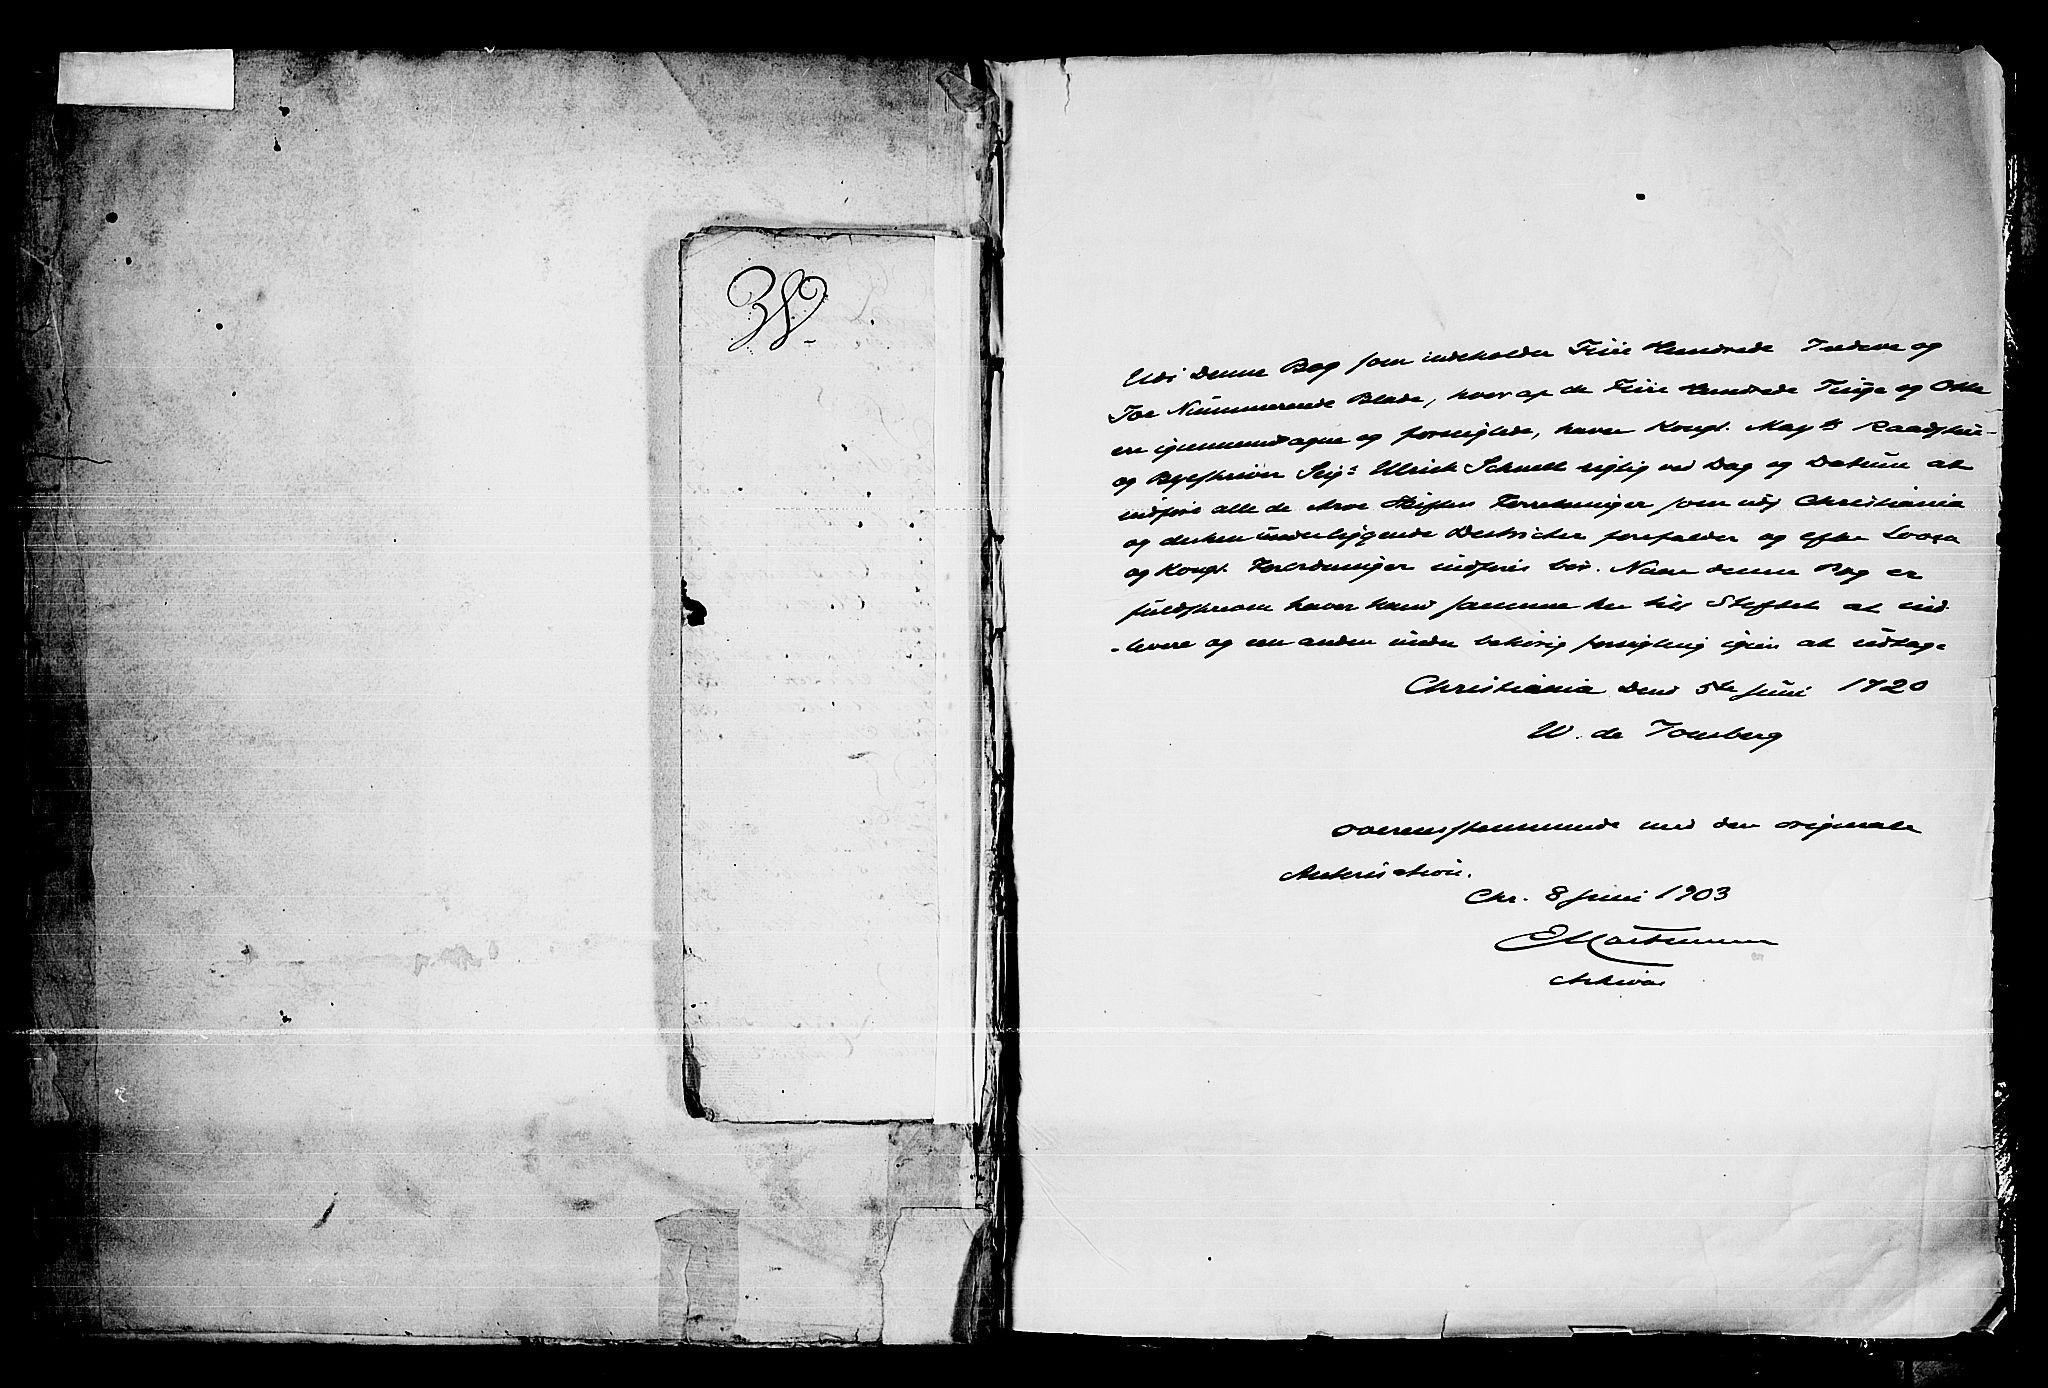 W
Udi Denne Bog som indeholder Fiire Hundrede Tredeve og
Toe Nummerende Blade, hvor af de Fiire Hundrede Tiuge og Otte
ere igiennemdragne og forseiglede, haver Kongl. May.ts Raadstue-
og Byeskriver Seig.r Ulrich Schnell rigtig ved Dag og Datum at
indføre alle de Arve Skiftes Forretninger som udj Christiania
og desken underliggende Destricter forefalder og efter Loven
og Kongl. Forordninger indføris bør. Naar denne Bog er
fuldskreven haver hand samme her til Stiftet at ind
-levere og een anden under behørig forsigling igien at udtage
Christiania Dend 5te Juni 1720
W. de Tonsberg
Overensstemmende med den originale
Autorisation.
Chr. 8 Juni 1903
Arkivar